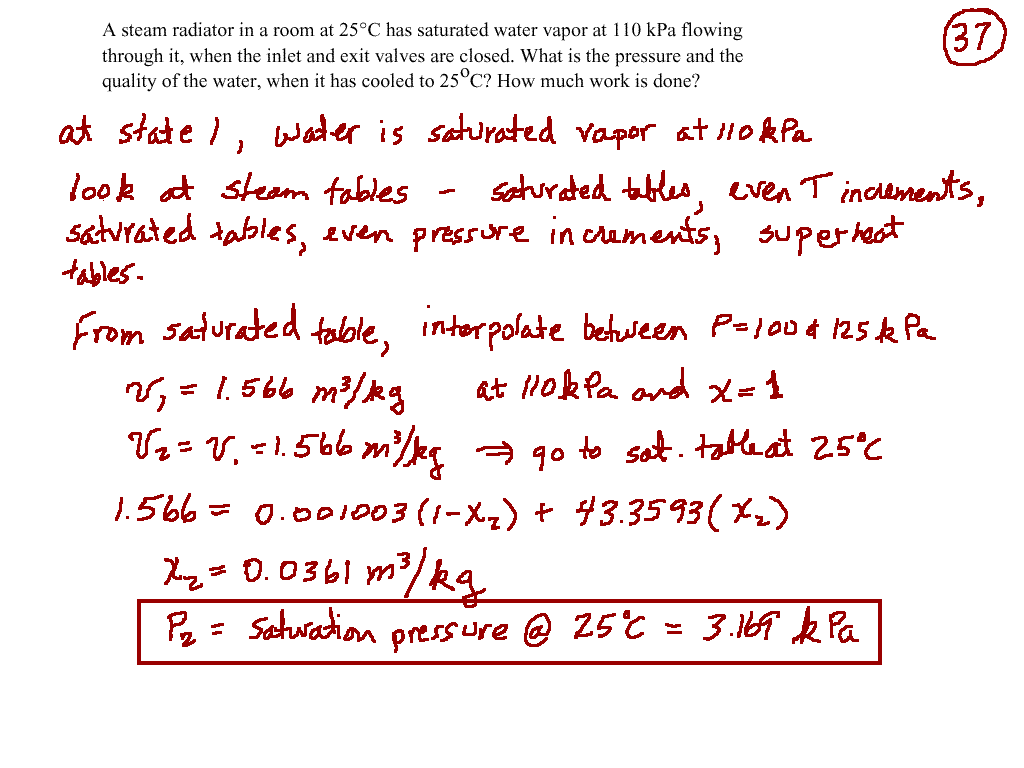 A steam radiator in a room at 25°C has saturated water vapor at 110 kPa flowing
through it, when the inlet and exit valves are closed. What is the pressure and the
quality of the water, when it has cooled to 25°C? How much work is done?
37
at state 1, water is saturated vapor at 110 kPa
look at steam tables - saturated tables, even T increments,
saturated tables, even pressure increments, superheat
tables.
From saturated table, interpolate between P=100 & 125 kPa
v₁ = 1.566 m³/kg at 110 kPa and x=1
v₂ = v₁ = 1.566 m³/kg ⇒ go to sat. table at 25°C
1.566 = 0.001003 (1-x₂) + 43.3593 (x₂)
x₂ = 0.0361 m³/kg
P₂ = saturation pressure @ 25°C = 3.169 kPa